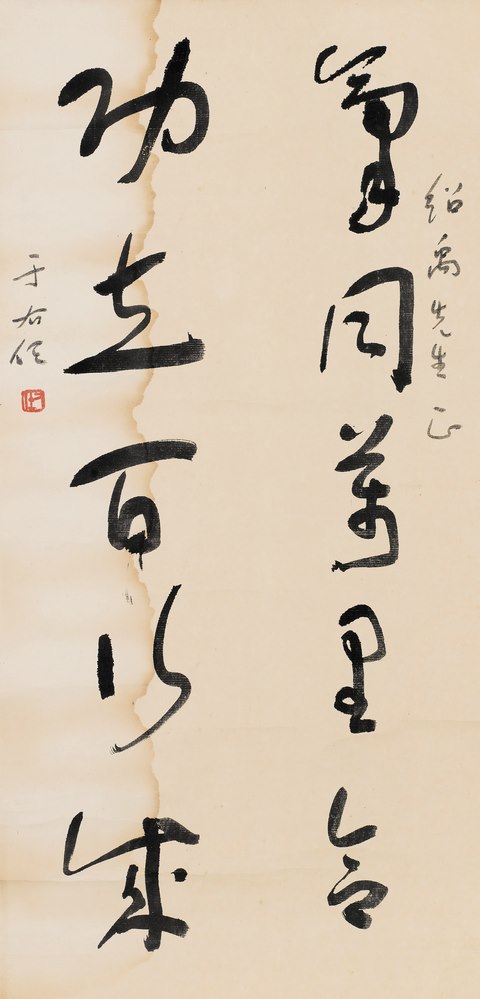 紹禹先生正
同萬里合
功立百行成
于右任